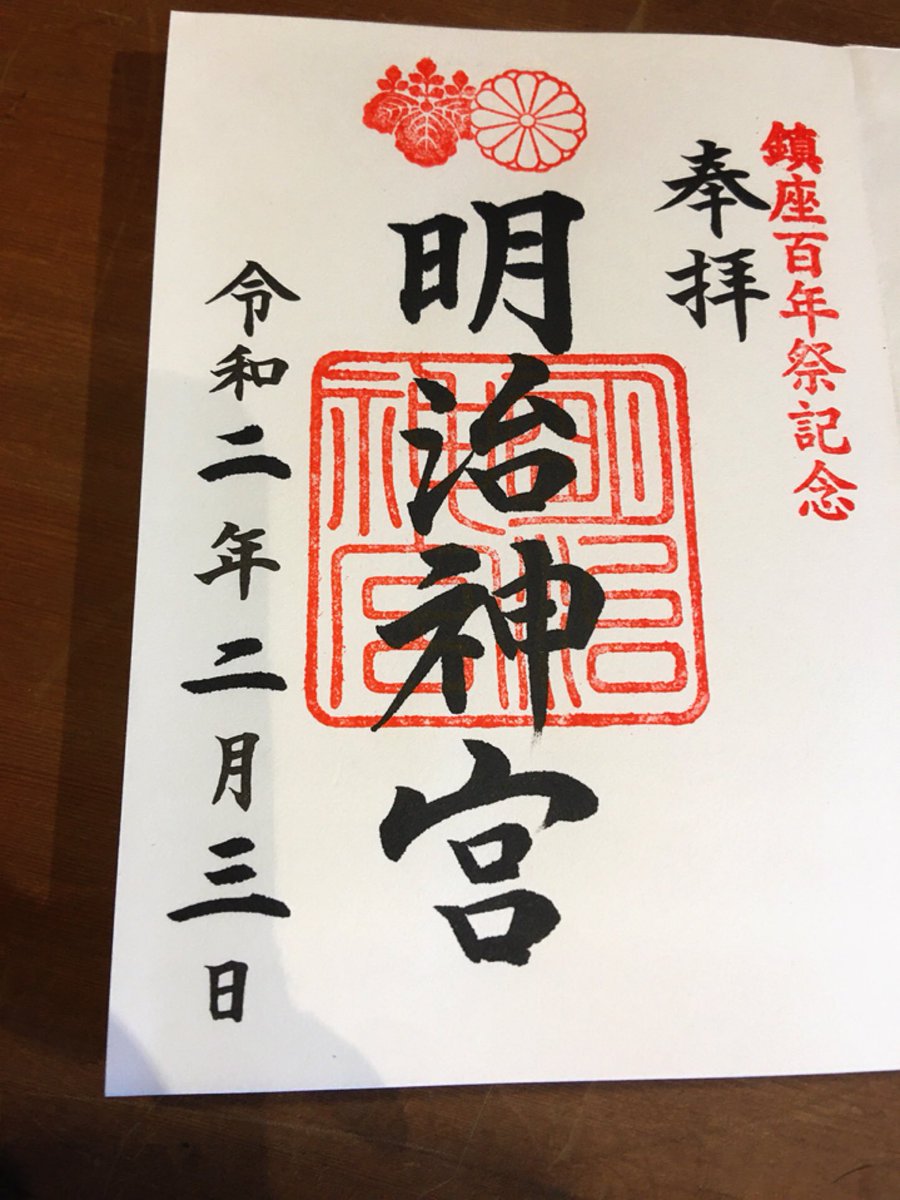 鎮座百年祭記念
奉拝
明治神宮
明治神宮
令和二年二月三日